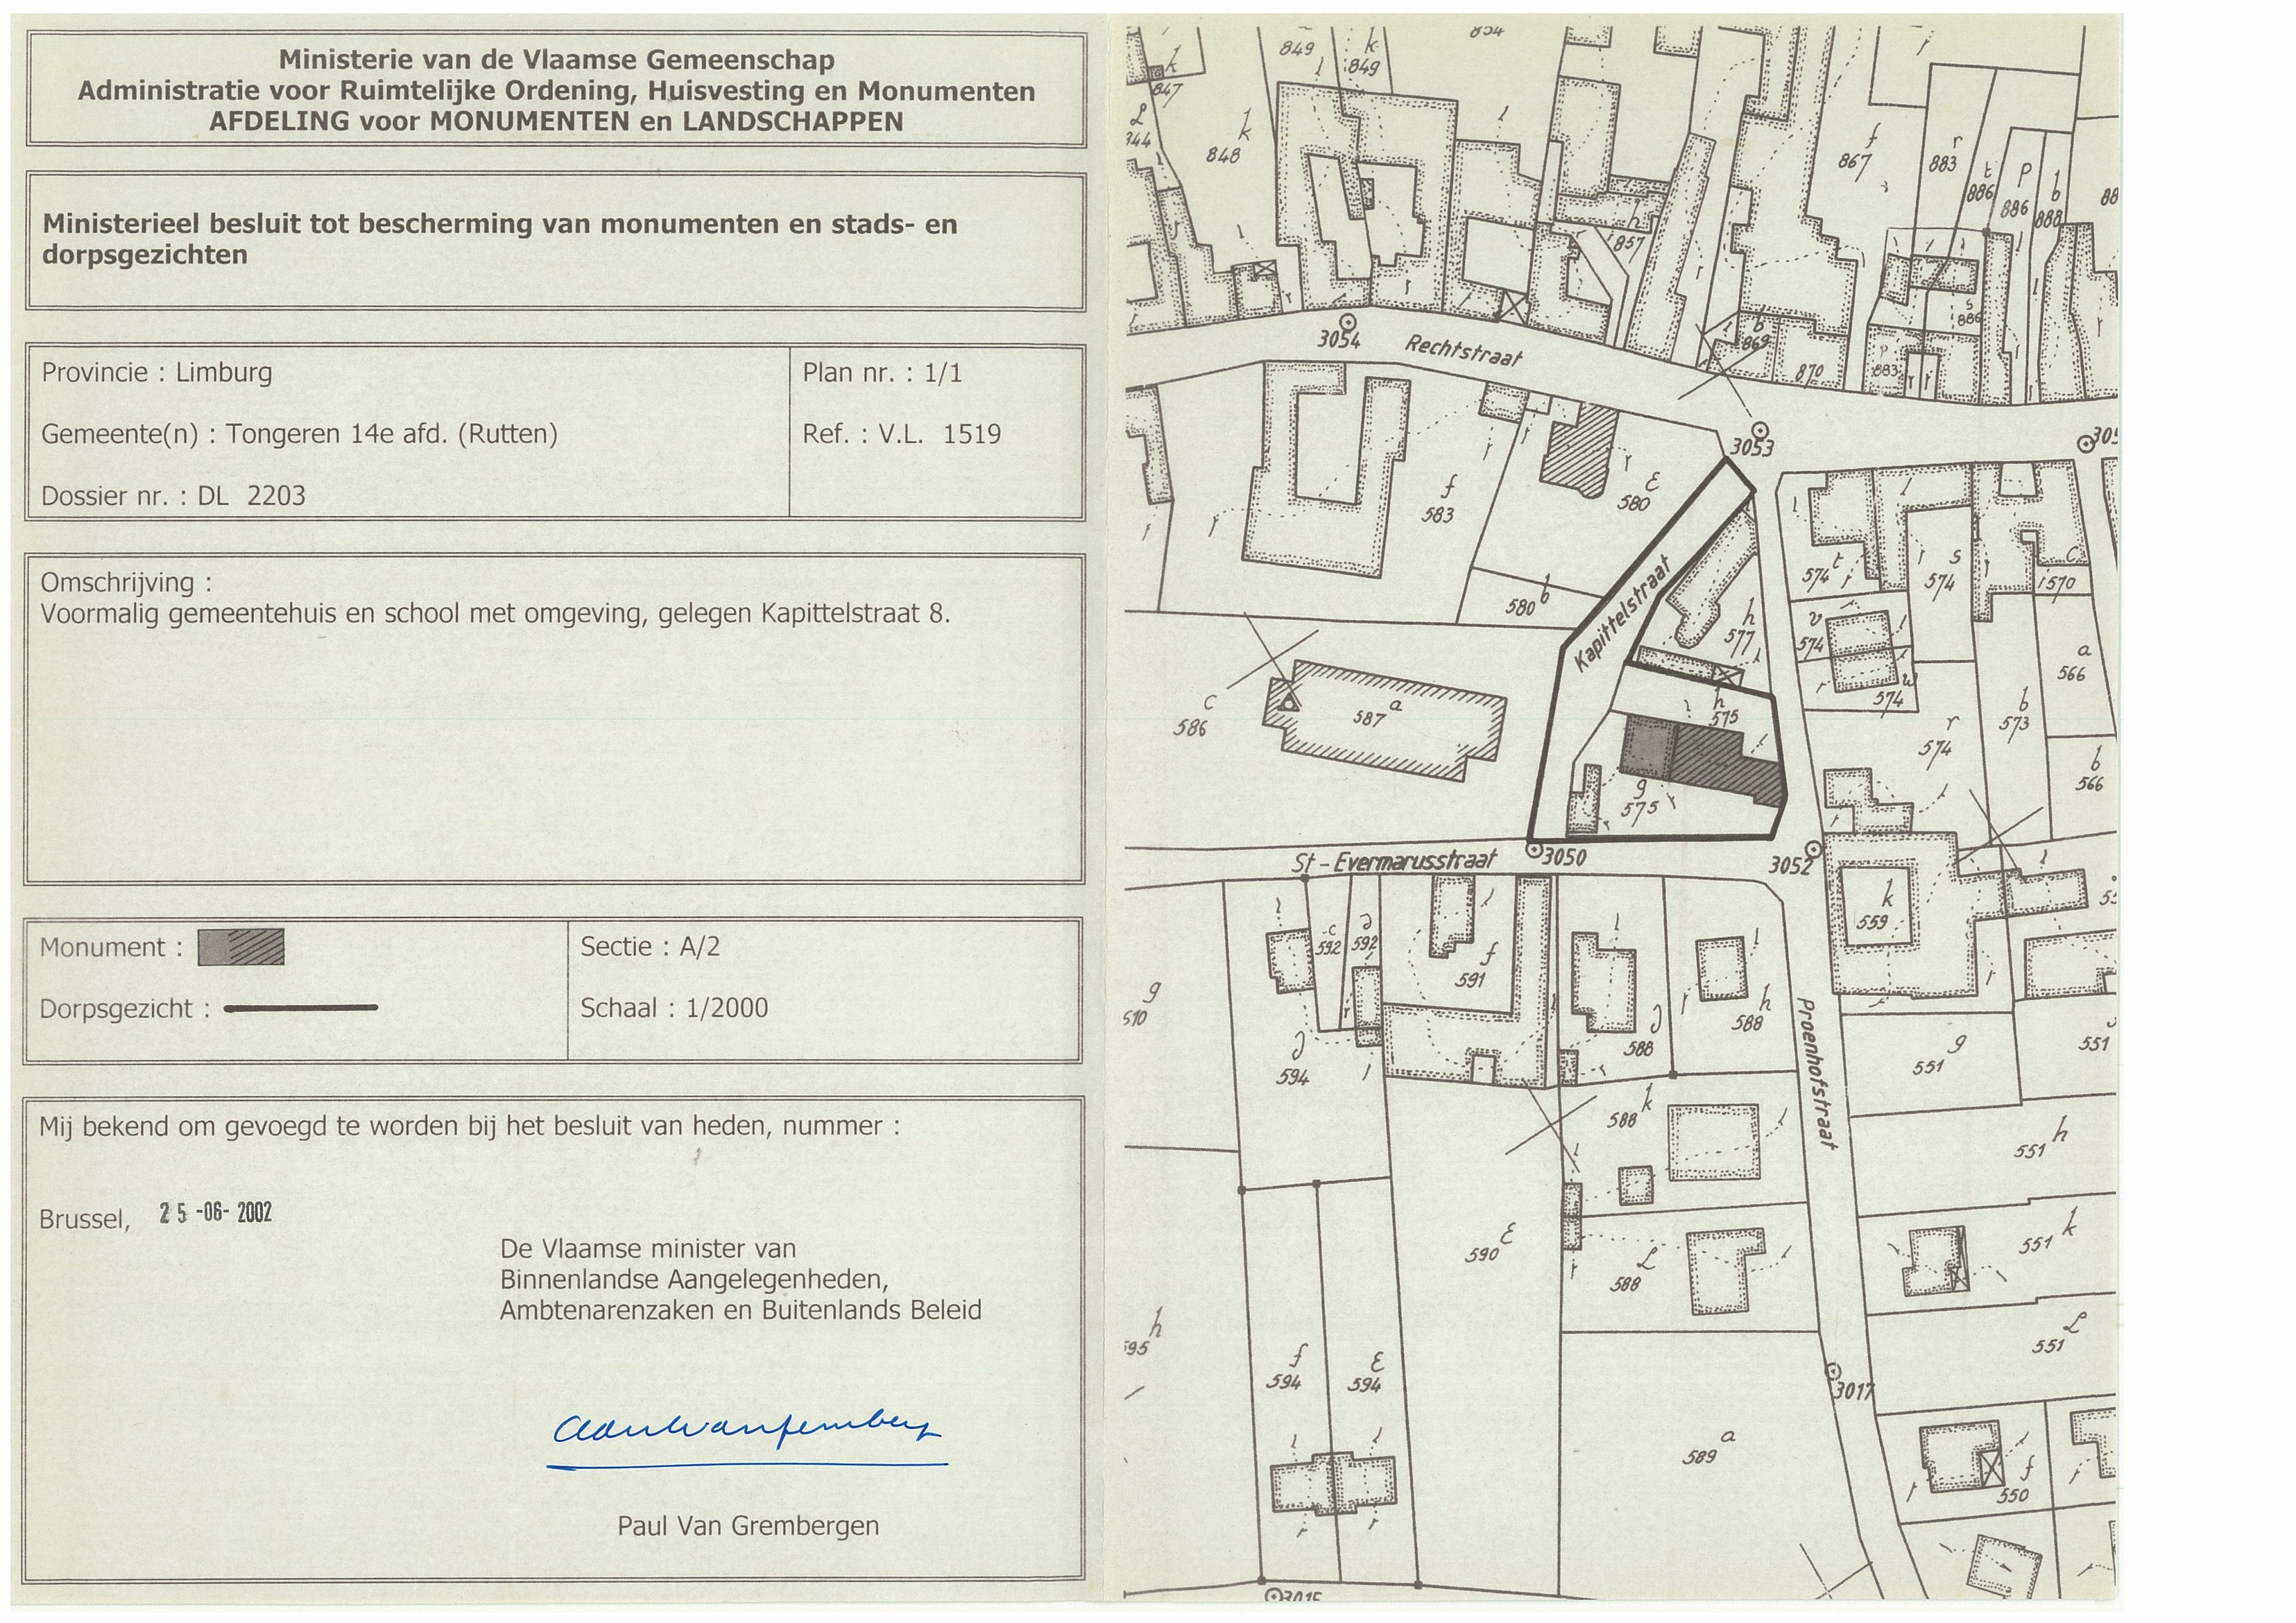 Ministerie van de Vlaamse Gemeenschap
Administratie voor Ruimtelijke Ordening, Huisvesting en Monumenten
AFDELING voor MONUMENTEN en LANDSCHAPPEN
Ministerieel besluit tot bescherming van monumenten en stads- en
dorpsgezichten
Provincie : Limburg
Plan nr. : 1/1
Gemeente(n) : Tongeren 14e afd. (Rutten)
Ref. : V.L. 1519
Dossier nr. : DL 2203
Omschrijving :
Voormalig gemeentehuis en school met omgeving, gelegen Kapittelstraat 8.
Monument :
Sectie : A/2
Dorpsgezicht :
Schaal : 1/2000
Mij bekend om gevoegd te worden bij het besluit van heden, nummer :
Brussel, 25-06-2002
De Vlaamse minister van
Binnenlandse Aangelegenheden,
Ambtenarenzaken en Buitenlands Beleid
Paul Van Grembergen
849
k
849
k
847
k
848
h
857
f
867
r
883
t
886
p
886
b
888
s
886
b
869
870
p
883
3054
Rechtstraat
3053
f
583
580
b
580
Kapittelstraat
h
577
t
574
s
574
c
570
v
574
w
574
a
566
c
586
a
587
h
575
g
575
r
574
b
573
b
566
St-Evermarusstraat
3050
3052
k
559
c
592
592
f
591
588
h
588
g
510
594
Proenhofstraat
g
551
551
k
588
h
551
590
588
k
551
h
f
594
594
551
3017
a
589
f
550
3015